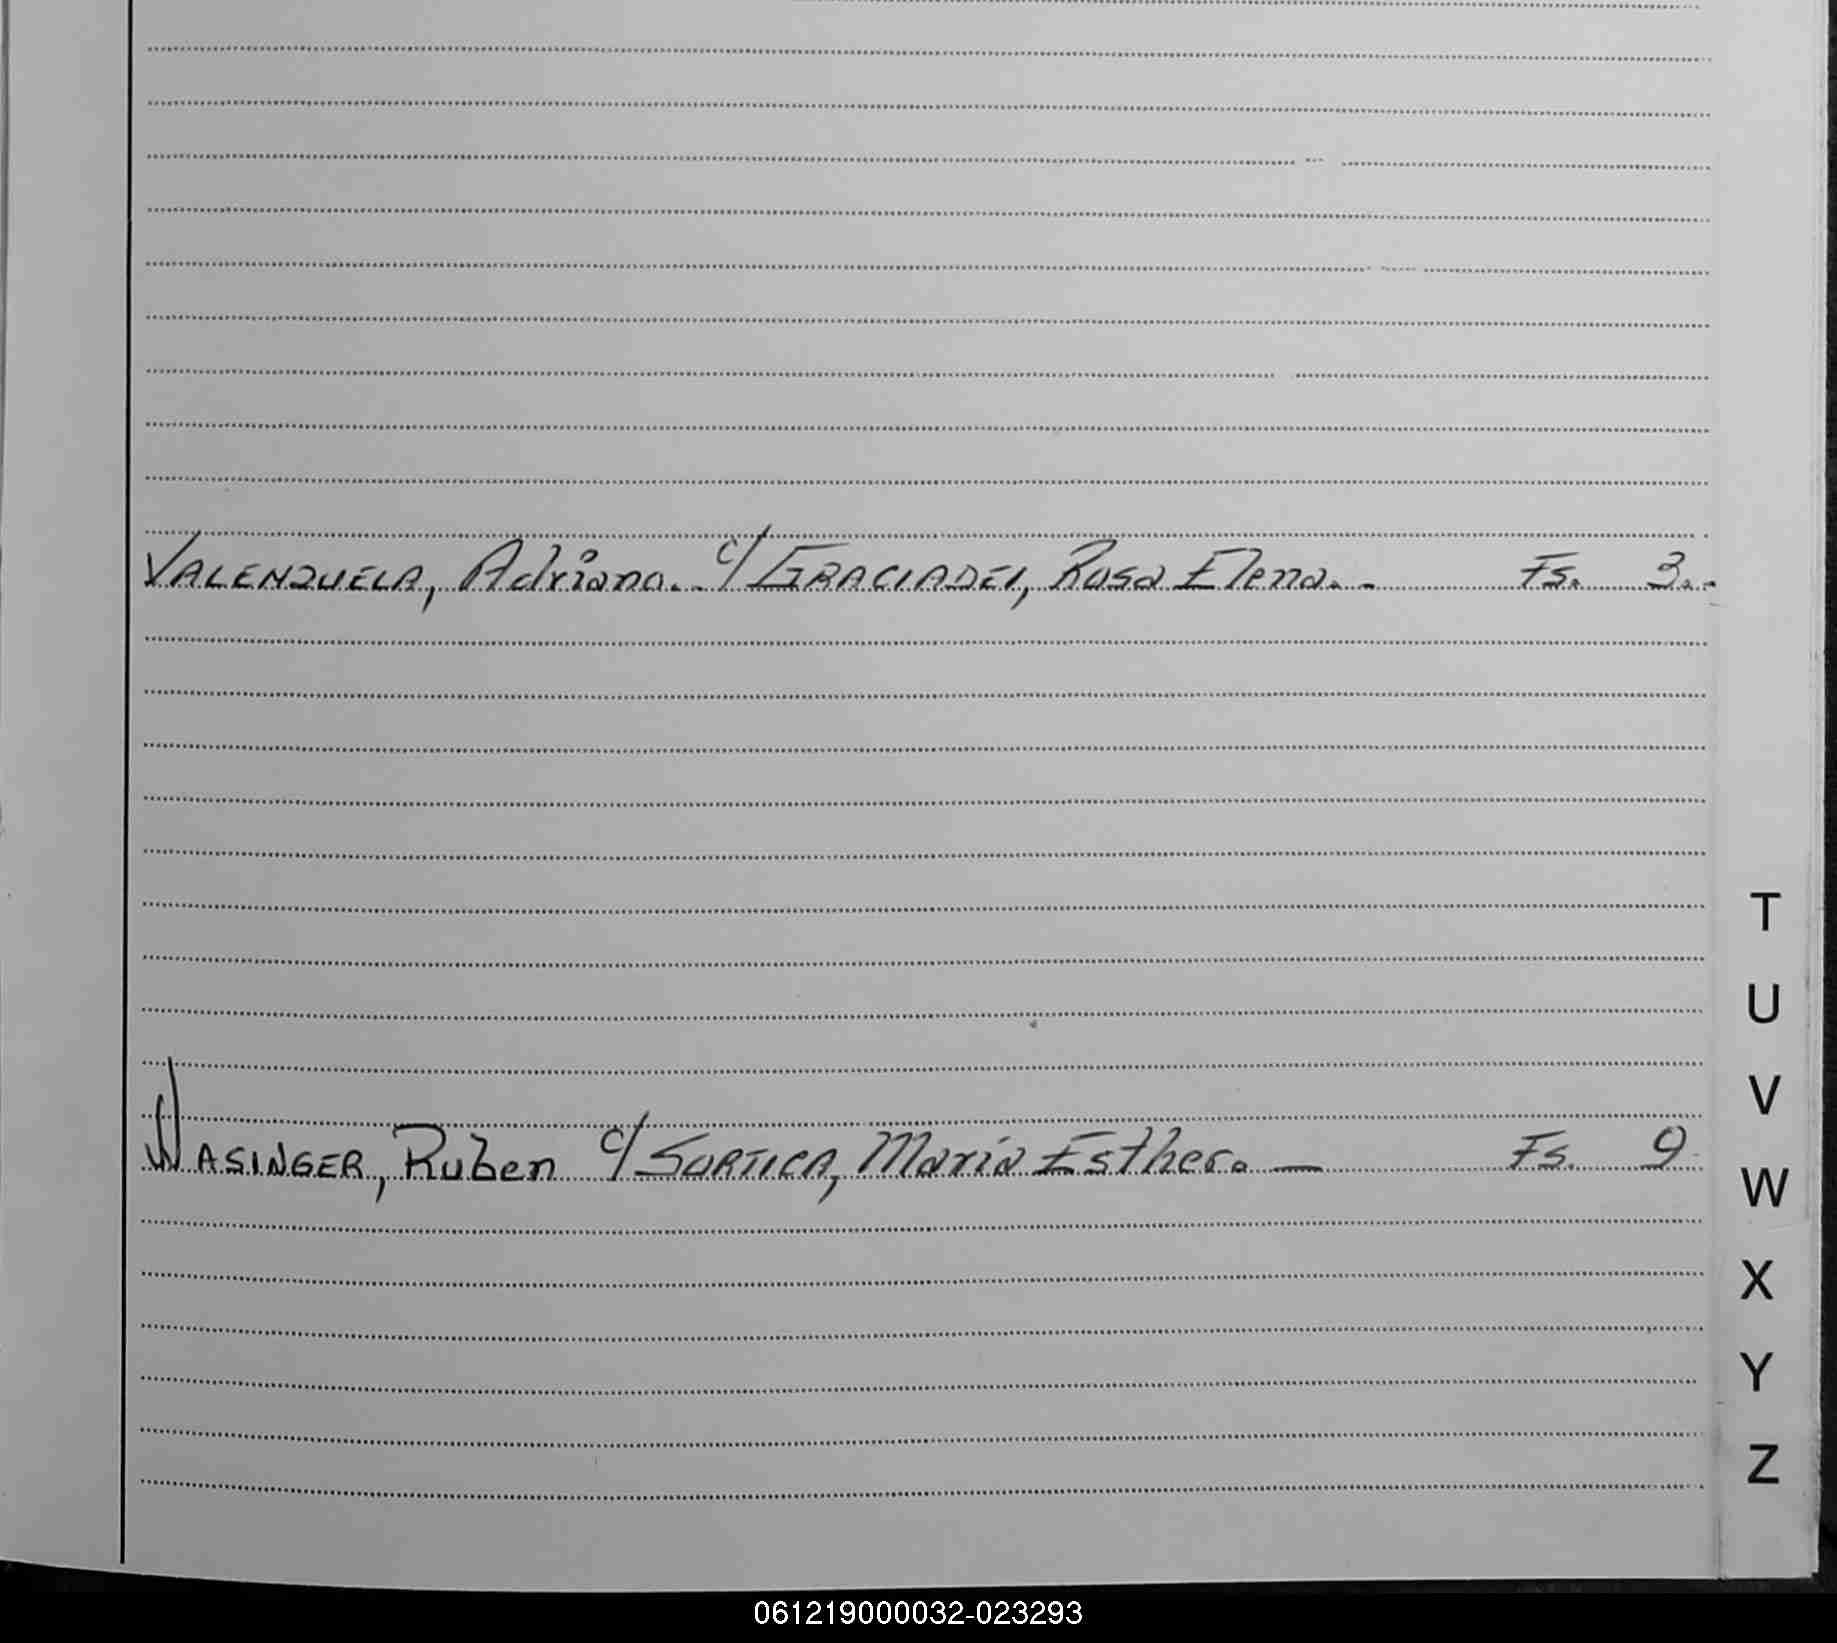 VALENZUELA, Adriano.- c/ GRACIADEI, Rosa Elena.- Fs. 3.-
T
U
V
WASINGER, Ruben c/ SORTICA, María Esther. — Fs. 9
W
X
Y
Z
061219000032-023293